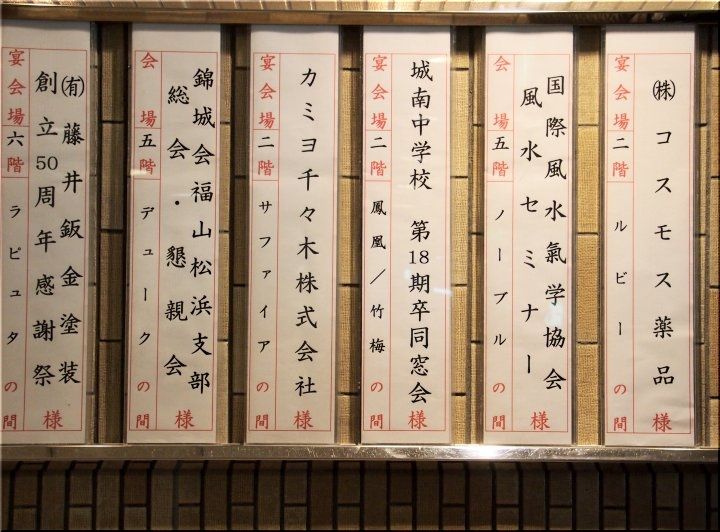 ㈱コスモス薬品様
宴会場二階ルビーの間
国際風水氣学協会
風水セミナー様
会場五階ノーブルの間
城南中学校 第18期卒同窓会様
宴会場二階鳳凰／竹梅の間
カミヨ千々木株式会社様
宴会場二階サファイアの間
錦城会福山松浜支部
総会・懇親会様
会場五階デュークの間
㈲藤井鈑金塗装
創立50周年感謝祭
宴会場六階ラピュタの間